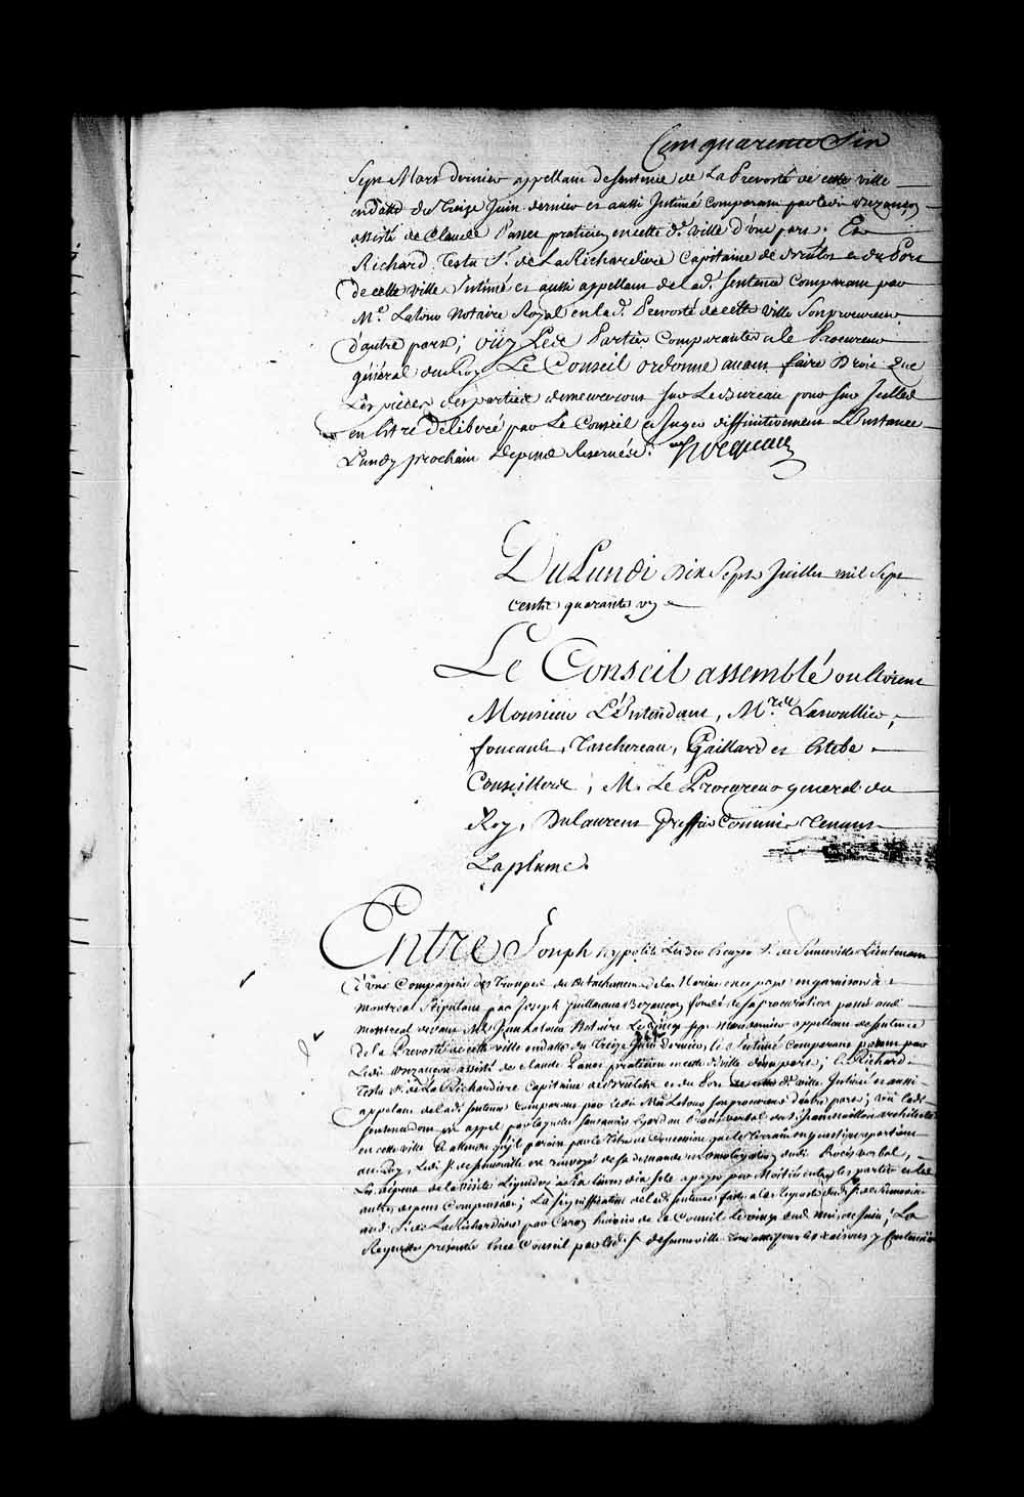 Cent quarente Six
Sept Mars dernier appellant de sentence de La Prevosté de cette ville
en datte du Treize Juin dernier et aussi Intimé comparant par ledit Bezançon
assisté de Claude Panet praticien en cette d.e ville d'une part. Et
Richard Testu S.r de La Richardiere Capitaine de Brulot et du Port
de cette ville Intimé et aussi appellant de lad.e Sentence Comparant par
M.e Latour Notaire Royal en lad.e Prevosté de cette ville Son procureur
d'autre part; oüy Les Parties Comparantes et le Procureur
général du Roy Le Conseil ordonne avant faire Droit que
Les pièces des parties demeureront sur Le Bureau pour sur Icelles
en Estre déliberé par Le Conseil et Jugér diffinitivement L'Instance
Lundy prochain depens Reservés. Hocquart
Du Lundi Dix Sept Juillet mil Sept
cents quarante un
Le Conseil assemblé ou Etoient
Monsieur L'Intendant, M.res Lanoullier,
foucault, Taschereau, Gaillard et Estebe
Conseillers; M. Le Procureur general du
Roy, Dulaurent Greffier Commis Tenant
La plume.
Entre Joseph hypolite Leber Ecuyer S.r de Senneville Lieutenant
d'une Compagnie des Troupes du Detachement de la Marine en ce pays en garnison à
montreal Stipulant par Joseph Guillaume Bezançon fondé de sa procuration passé aud.
montreal devant Notaire Le vingt sept Mars dernier appellant de Sentence
de la Prevosté de cette ville en datte du Treize Juin dernier, et Intimé comparant par
Ledit Bezançon assisté de claude Panet praticien en cette d.e ville d'une part; et Richard
Testu S.r de La Richardiere Capitaine de Brulot et du Port de cette d.e ville Intimé et aussi
appellant de lad.e Sentence comparant par ledit M.e Latour Son procureur d'autre part; vû lad.e
sentence dont est appel par laquelle Sans avoir Egard au Procès verbal du S.r Jean Maillou architecte
en cette ville et attendu qu'il paroit par le que le Terrain en question appartient
au Roy, Ledit S.r de Senneville est renvoyé de sa demande en omologation dudit Procès verbal,
Les dépens de la Visite Liquidez à livres dix sols payés par Moitié entre les parties et les
autres depens Compensés; La signiffication de lad.e Sentence faite a la Requeste dud. S.r de Senneville
aud. S.r de La Richardiere par huissier de ce Conseil Le vingt dud. mois de Juin; La
Requeste présentée En ce Conseil par led. S.r de Senneville pour les raisons y Contenües